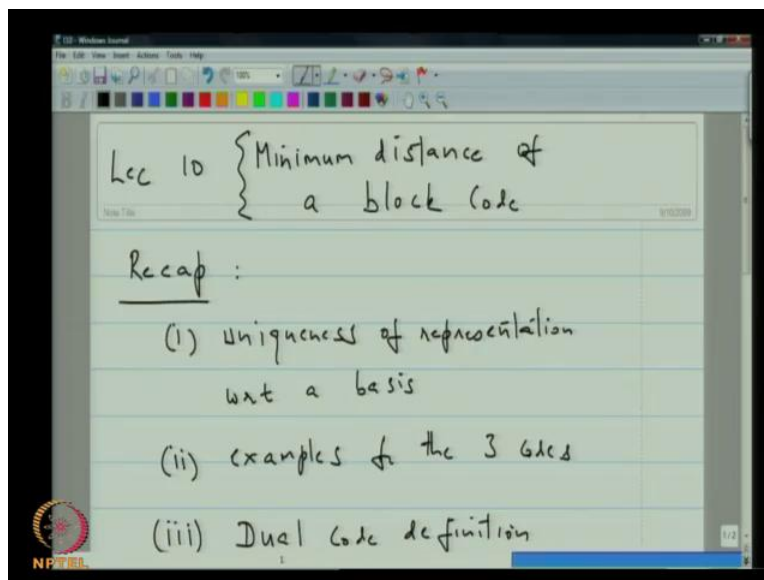 L10 - Windows Journal
File Edit View Insert Actions Tools Help
100%
B I
Lec 10 { Minimum distance of
a block Code
Note Title
9/10/2009
Recap :
(i) uniqueness of representation
wrt a basis
(ii) examples for the 3 codes
(iii) Dual Code definition
1
1/2
NPTEL